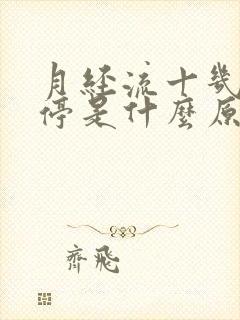 月経流十幾
停是什麼原
齊飛